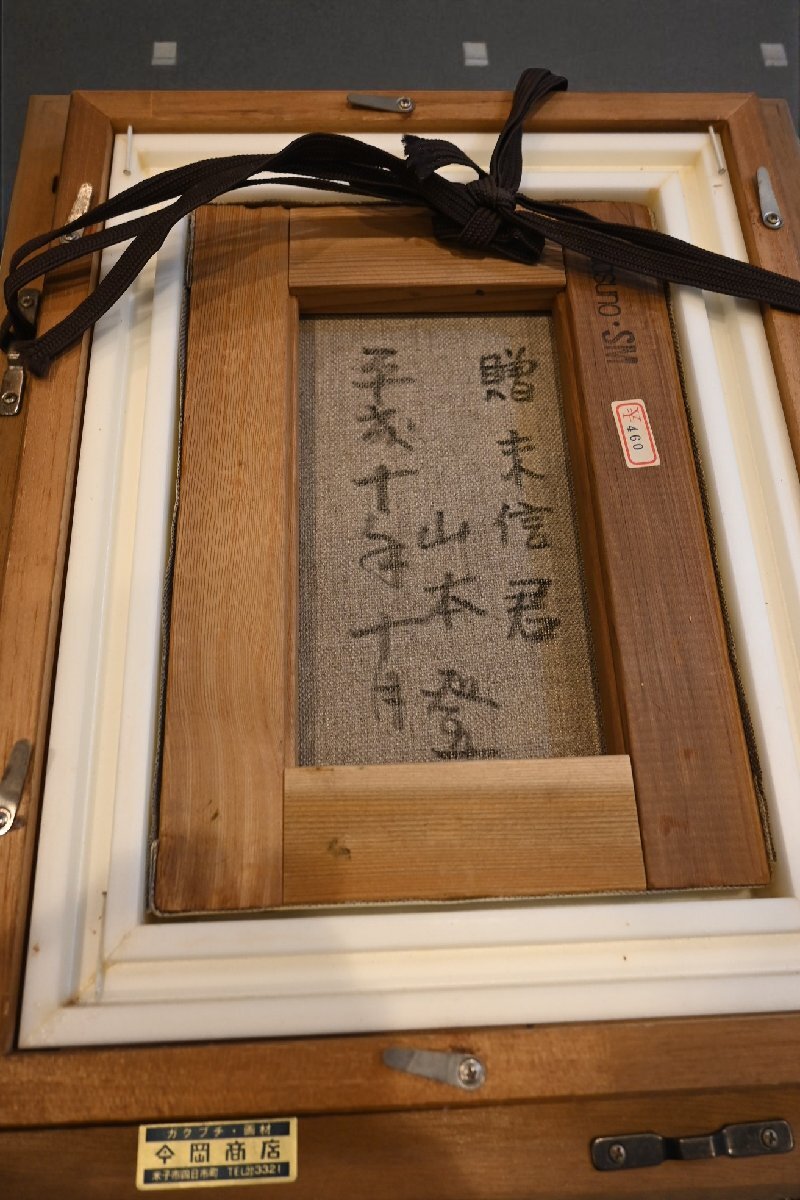 贈 末信君
山本 登
平成十年十月
suno・SM
¥460
ガクブチ・画材
今岡商店
米子市四日市町 TEL(2)3321